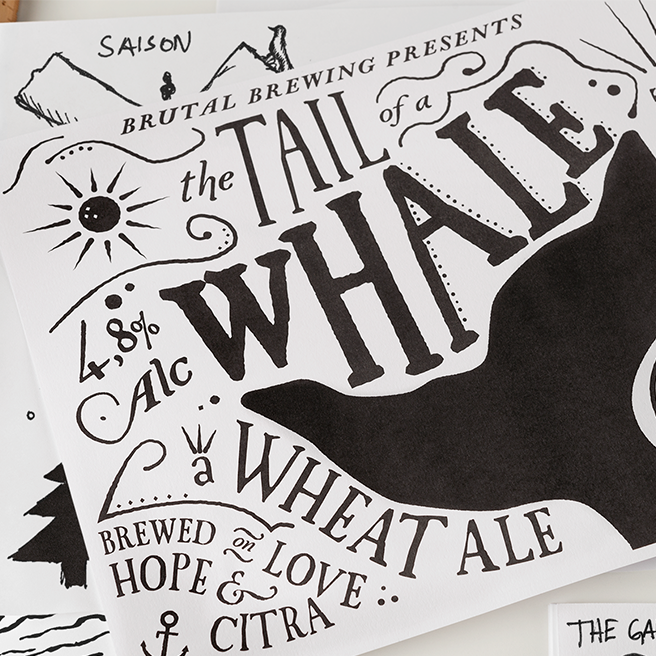 SAISON
BRUTAL BREWING PRESENTS
the TAIL of a
WHALE
4,8%
Alc
a WHEAT ALE
BREWED on LOVE
HOPE &
CITRA
THE